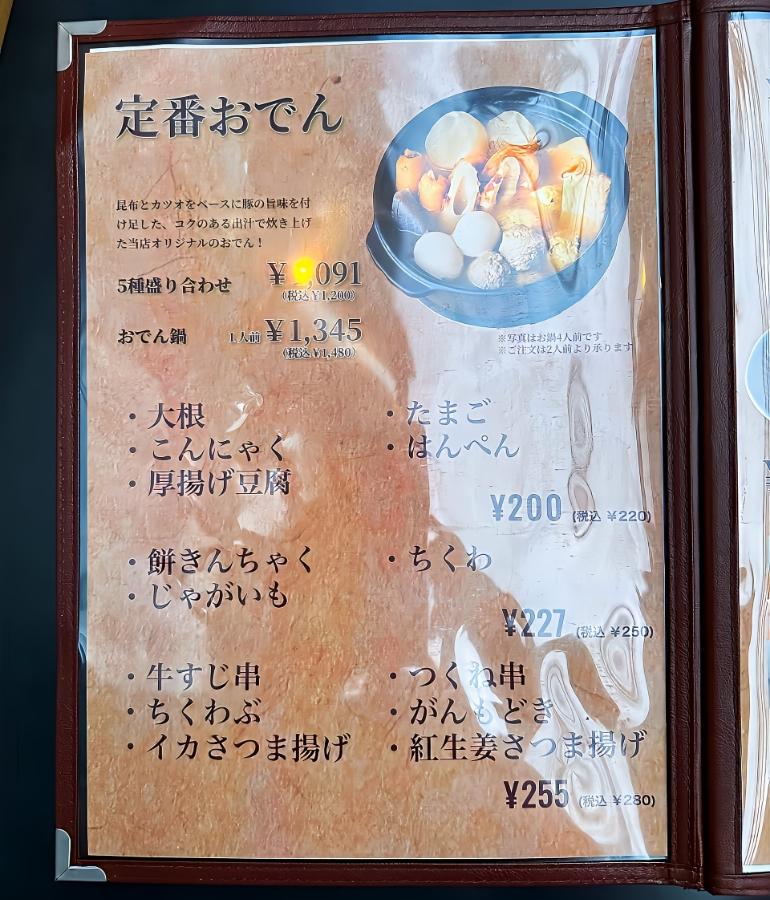 定番おでん
昆布とカツオをベースに豚の旨味を付
け足した、コクのある出汁で炊き上げ
た当店オリジナルのおでん！
5種盛り合わせ
(税込 ¥1,200)
おでん鍋 1人前 ¥1,345
(税込 ¥1,480)
※写真はお鍋4人前です
※ご注文は2人前より承ります
・大根 ・たまご
・こんにゃく ・はんぺん
・厚揚げ豆腐
¥200 (税込 ¥220)
・餅きんちゃく ・ちくわ
・じゃがいも
¥227 (税込 ¥250)
・牛すじ串 ・つくね串
・ちくわぶ ・がんもどき
・イカさつま揚げ ・紅生姜さつま揚げ
¥255 (税込 ¥280)